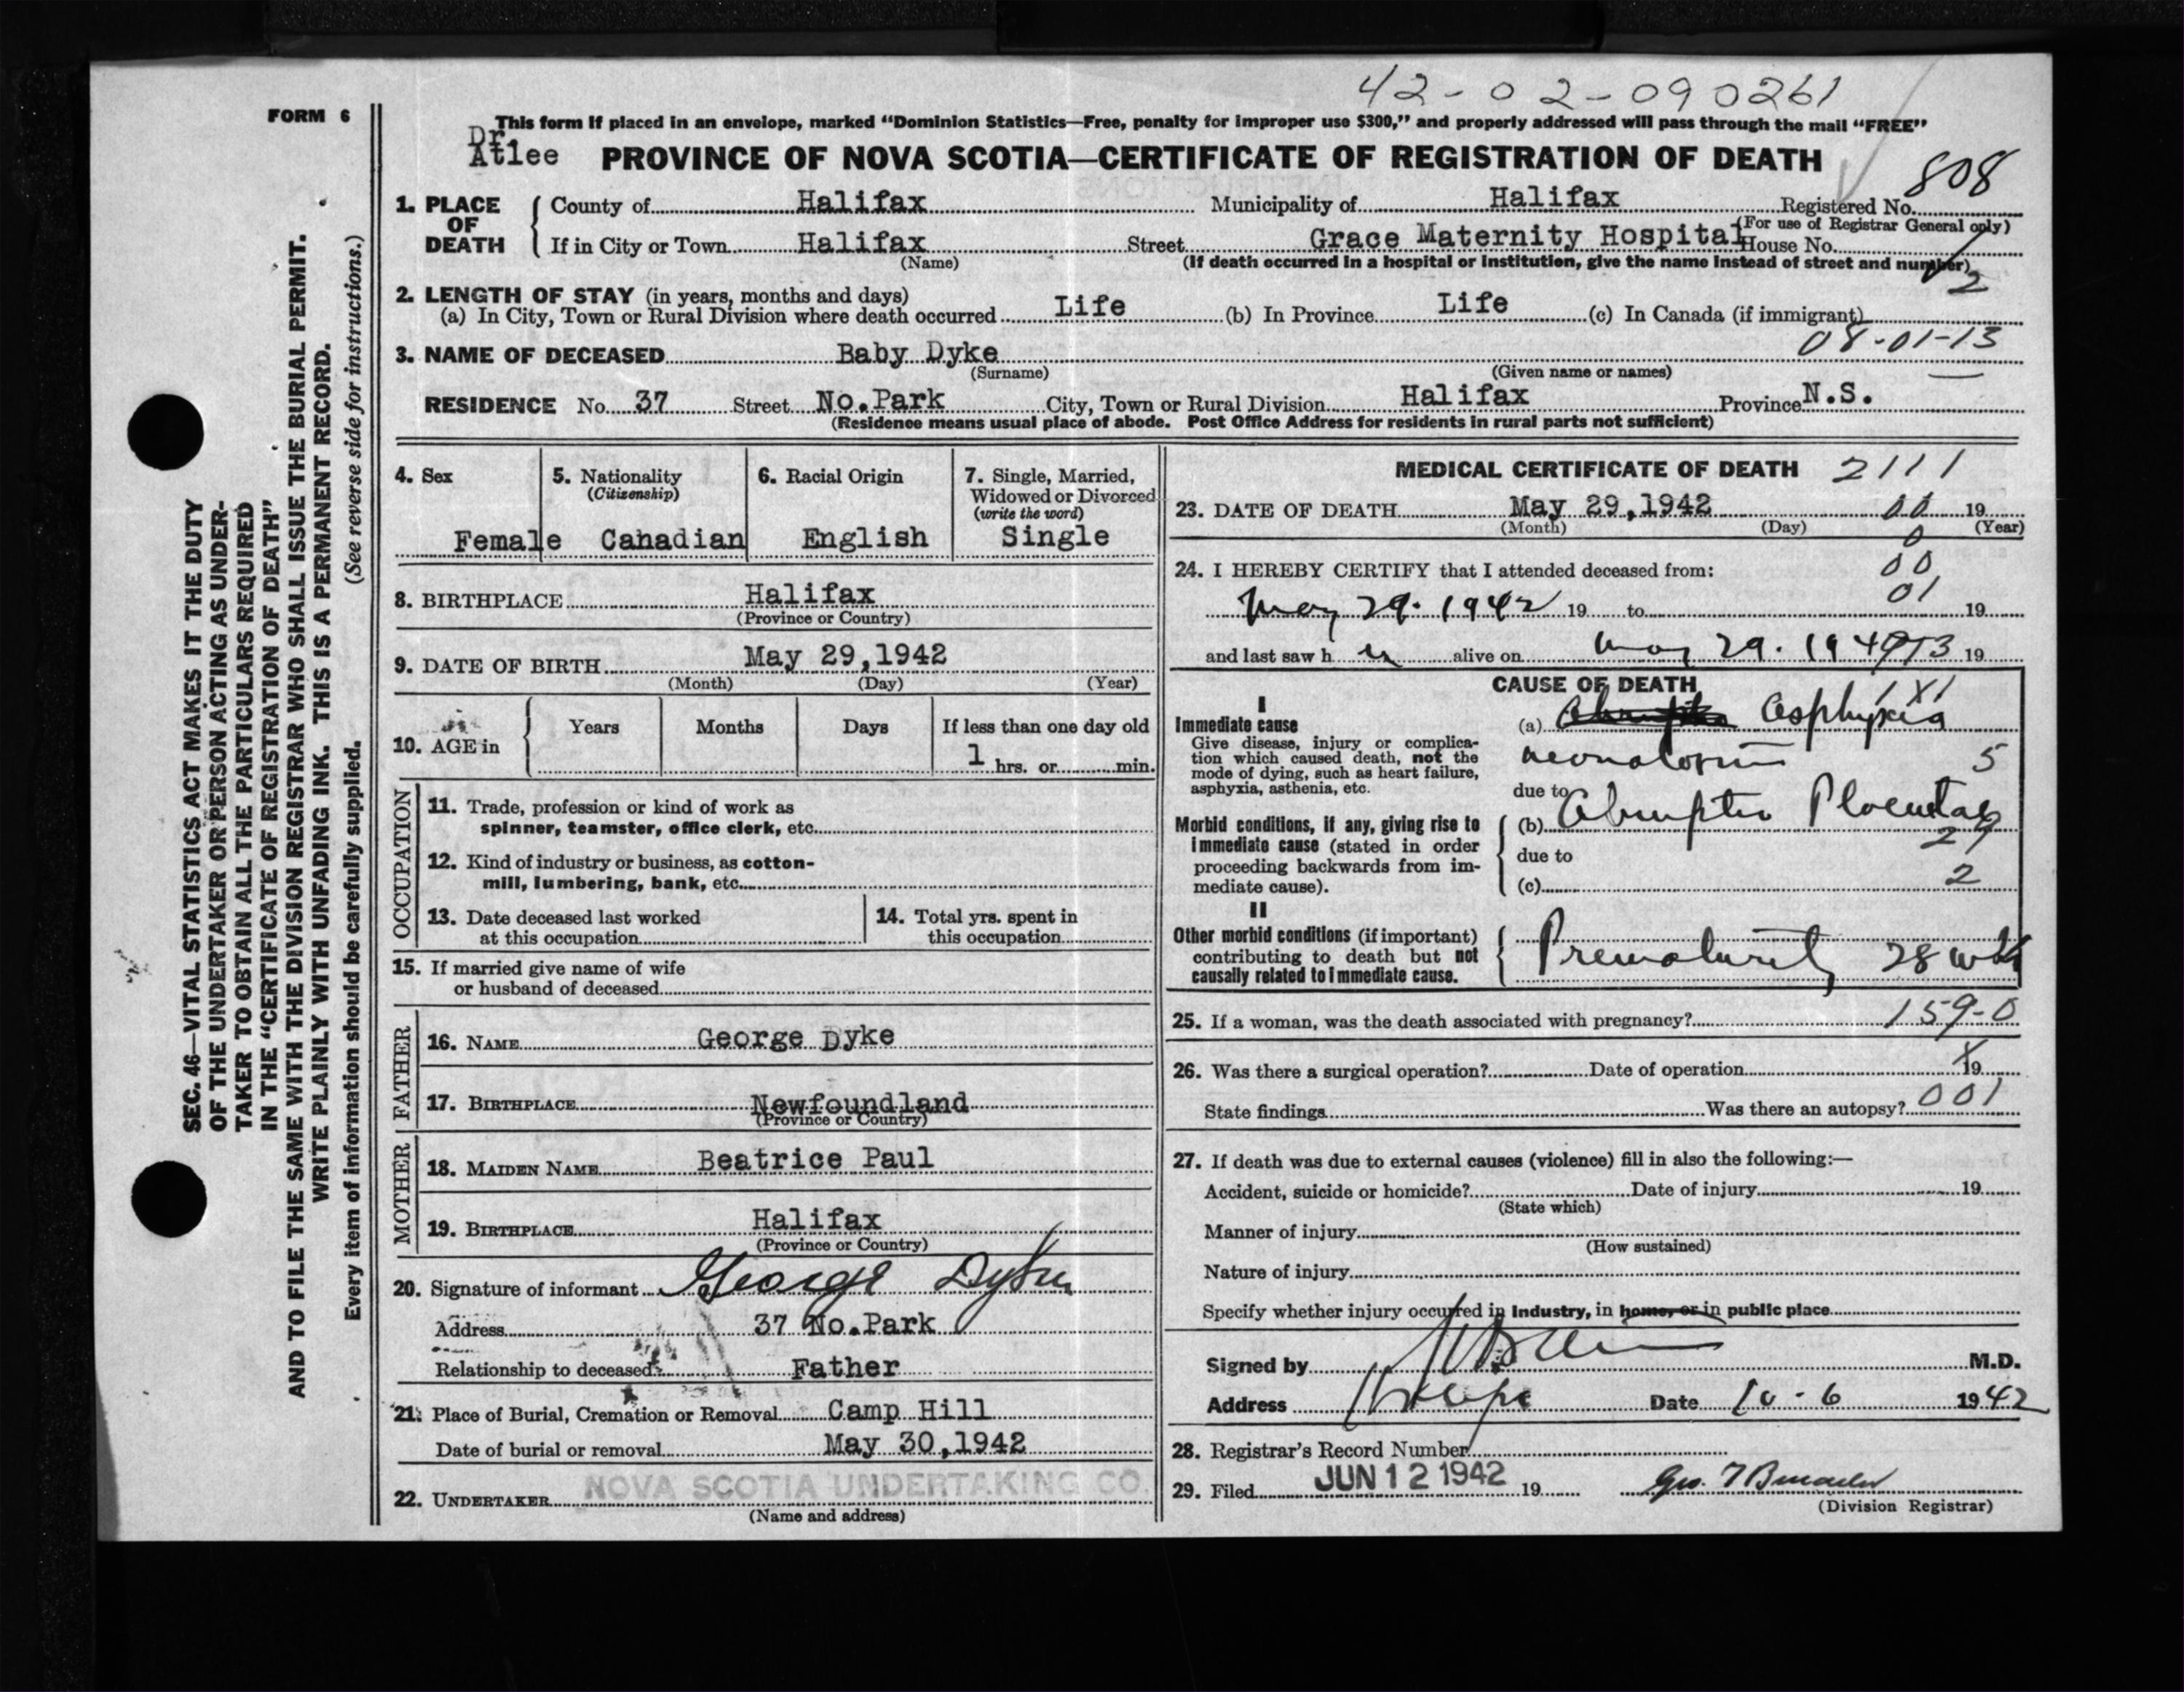 42-02-090261
FORM 6
This form if placed in an envelope, marked "Dominion Statistics—Free, penalty for improper use $300," and properly addressed will pass through the mail "FREE"
Dr
Atlee
PROVINCE OF NOVA SCOTIA—CERTIFICATE OF REGISTRATION OF DEATH
808
1. PLACE OF DEATH County of Halifax Municipality of Halifax Registered No.
(For use of Registrar General only)
If in City or Town Halifax Street Grace Maternity Hospital House No.
(Name) (If death occurred in a hospital or institution, give the name instead of street and number)
2
2. LENGTH OF STAY (in years, months and days)
(a) In City, Town or Rural Division where death occurred Life (b) In Province Life (c) In Canada (if immigrant)
08-01-13
3. NAME OF DECEASED Baby Dyke
(Surname) (Given name or names)
RESIDENCE No. 37 Street No.Park City, Town or Rural Division Halifax Province N.S.
(Residence means usual place of abode. Post Office Address for residents in rural parts not sufficient)
4. Sex 5. Nationality (Citizenship) 6. Racial Origin 7. Single, Married, Widowed or Divorced (write the word)
Female Canadian English Single
8. BIRTHPLACE Halifax
(Province or Country)
9. DATE OF BIRTH May 29,1942
(Month) (Day) (Year)
10. AGE in Years Months Days If less than one day old
1 hrs. or min.
OCCUPATION
11. Trade, profession or kind of work as
spinner, teamster, office clerk, etc.
12. Kind of industry or business, as cotton-
mill, lumbering, bank, etc.
13. Date deceased last worked
at this occupation
14. Total yrs. spent in
this occupation
15. If married give name of wife
or husband of deceased
FATHER
16. NAME George Dyke
17. BIRTHPLACE Newfoundland
(Province or Country)
MOTHER
18. MAIDEN NAME Beatrice Paul
19. BIRTHPLACE Halifax
(Province or Country)
20. Signature of informant George Dyke
Address 37 No.Park
Relationship to deceased Father
21. Place of Burial, Cremation or Removal Camp Hill
Date of burial or removal May 30,1942
22. UNDERTAKER NOVA SCOTIA UNDERTAKING CO.
(Name and address)
MEDICAL CERTIFICATE OF DEATH 2111
23. DATE OF DEATH May 29,1942 00 19
(Month) (Day) (Year)
0
24. I HEREBY CERTIFY that I attended deceased from: 00
01
May 29. 1942 19 to 19
and last saw h er alive on May 29. 194 19
CAUSE OF DEATH
I
Immediate cause
Give disease, injury or complica-
tion which caused death, not the
mode of dying, such as heart failure,
asphyxia, asthenia, etc.
(a) Asphyxia
neonatorum 5
due to
Morbid conditions, if any, giving rise to
immediate cause (stated in order
proceeding backwards from im-
mediate cause).
(b) Abruptio Placentae
29
due to
(c) 2
II
Other morbid conditions (if important)
contributing to death but not
causally related to immediate cause.
Prematurity 28 wks
25. If a woman, was the death associated with pregnancy? 159-0
26. Was there a surgical operation? Date of operation X 19
State findings Was there an autopsy? 001
27. If death was due to external causes (violence) fill in also the following:—
Accident, suicide or homicide? Date of injury 19
(State which)
Manner of injury
(How sustained)
Nature of injury
Specify whether injury occurred in industry, in home, or in public place
Signed by M.D.
Address Date 10-6 1942
28. Registrar's Record Number
29. Filed JUN 12 1942 19
(Division Registrar)
SEC. 46—VITAL STATISTICS ACT MAKES IT THE DUTY
OF THE UNDERTAKER OR PERSON ACTING AS UNDER-
TAKER TO OBTAIN ALL THE PARTICULARS REQUIRED
IN THE "CERTIFICATE OF REGISTRATION OF DEATH"
AND TO FILE THE SAME WITH THE DIVISION REGISTRAR WHO SHALL ISSUE THE BURIAL PERMIT.
WRITE PLAINLY WITH UNFADING INK. THIS IS A PERMANENT RECORD.
Every item of information should be carefully supplied. (See reverse side for instructions.)